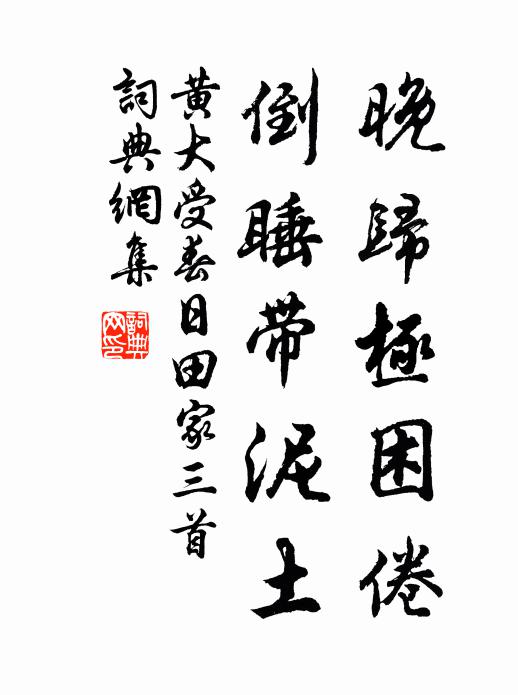 晚歸極困倦
倒睡帶泥土
黃大受春日田家三首
詞典網集
詞典
网印